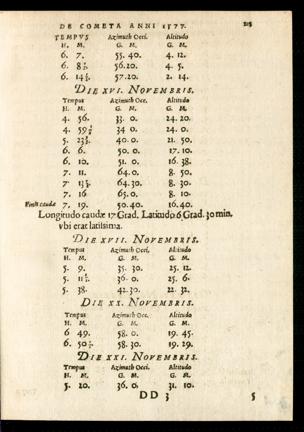 DE COMETA ANNI 1577. 215
TEMPVS Azimuth Occi. Altitudo
H. M. G. M. G. M.
6. 7. 55. 40. 4. 12.
6. 8½. 56. 20. 4. 5.
6. 14½. 57. 20. 2. 14.
DIE XVI. NOVEMBRIS.
Tempus Azimuth Occ. Altitudo
H. M. G. M. G. M.
4. 56. 33. 0. 24. 20.
4. 59½ 34 0. 24. 0.
5. 23½. 40. 0. 21. 50.
6. 6. 50. 0. 17. 10.
6. 10. 51. 0. 16. 38.
7. 11. 64. 0. 8. 50.
7. 13½. 64. 30. 8. 30.
7. 16 65. 0. 8. 10.
Finis caudæ 7. 19. 50. 40. 16. 40.
Longitudo caudæ 17 Grad. Latitudo 6 Grad. 30 min.
vbi erat latissima.
DIE XVII. NOVEMBRIS.
Tempus Azimuth Occi. Altitudo
H. M. G. M. G. M.
5. 9. 35. 30. 25. 12.
5. 11½. 36. 0. 25. 6.
5. 38. 42. 30. 22. 32.
DIE XX. NOVEMBRIS.
Tempus Azimuth Occi. Altitudo
H. M. G. M. G. M.
6 49. 58. 0. 19. 45.
6. 50½. 58. 30. 19. 29.
DIE XXI. NOVEMBRIS.
Tempus Azimuth Occi. Altitudo
H. M. G. M. G. M.
5. 20. 36. 0. 31. 10.
DD 3 5